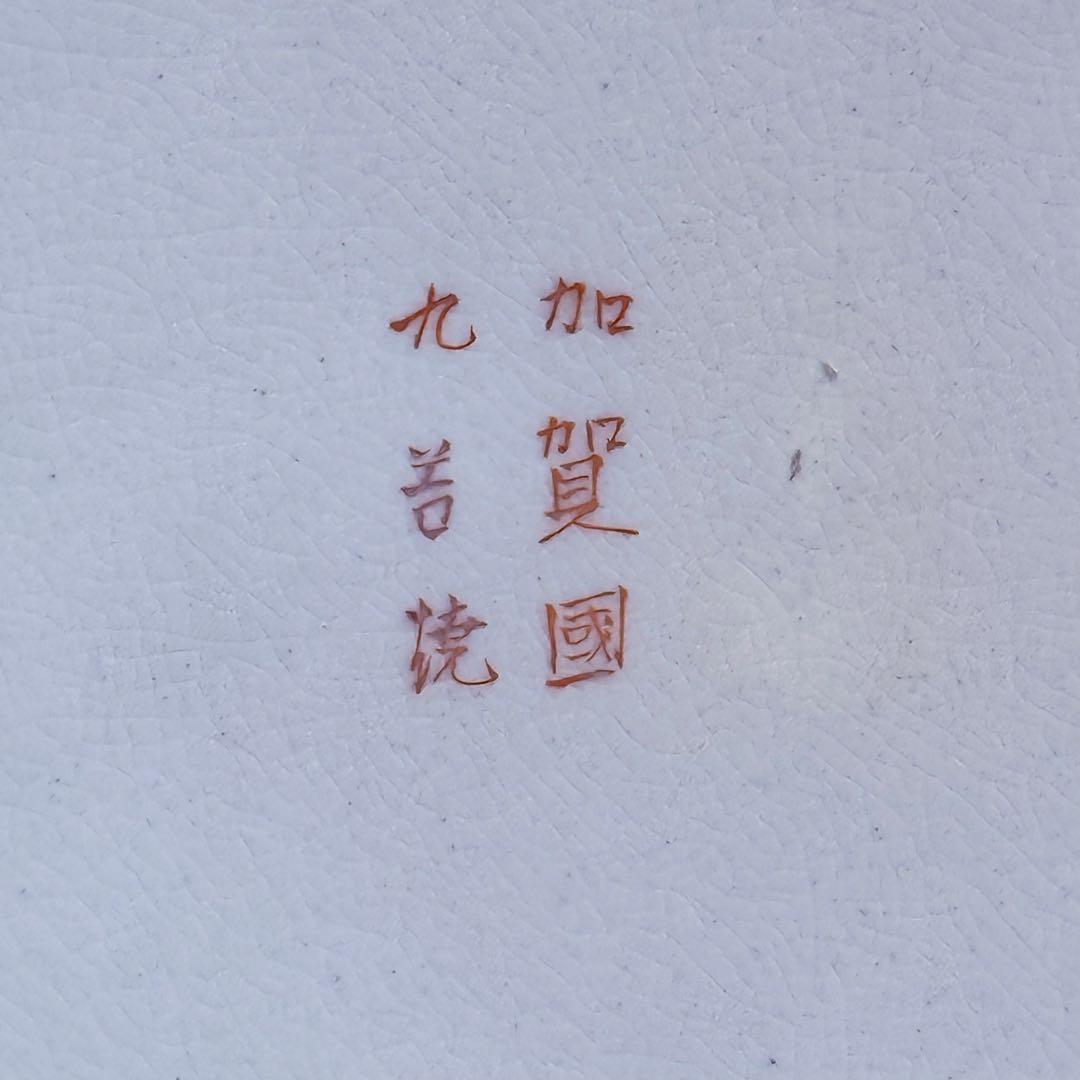 加賀國
九谷焼